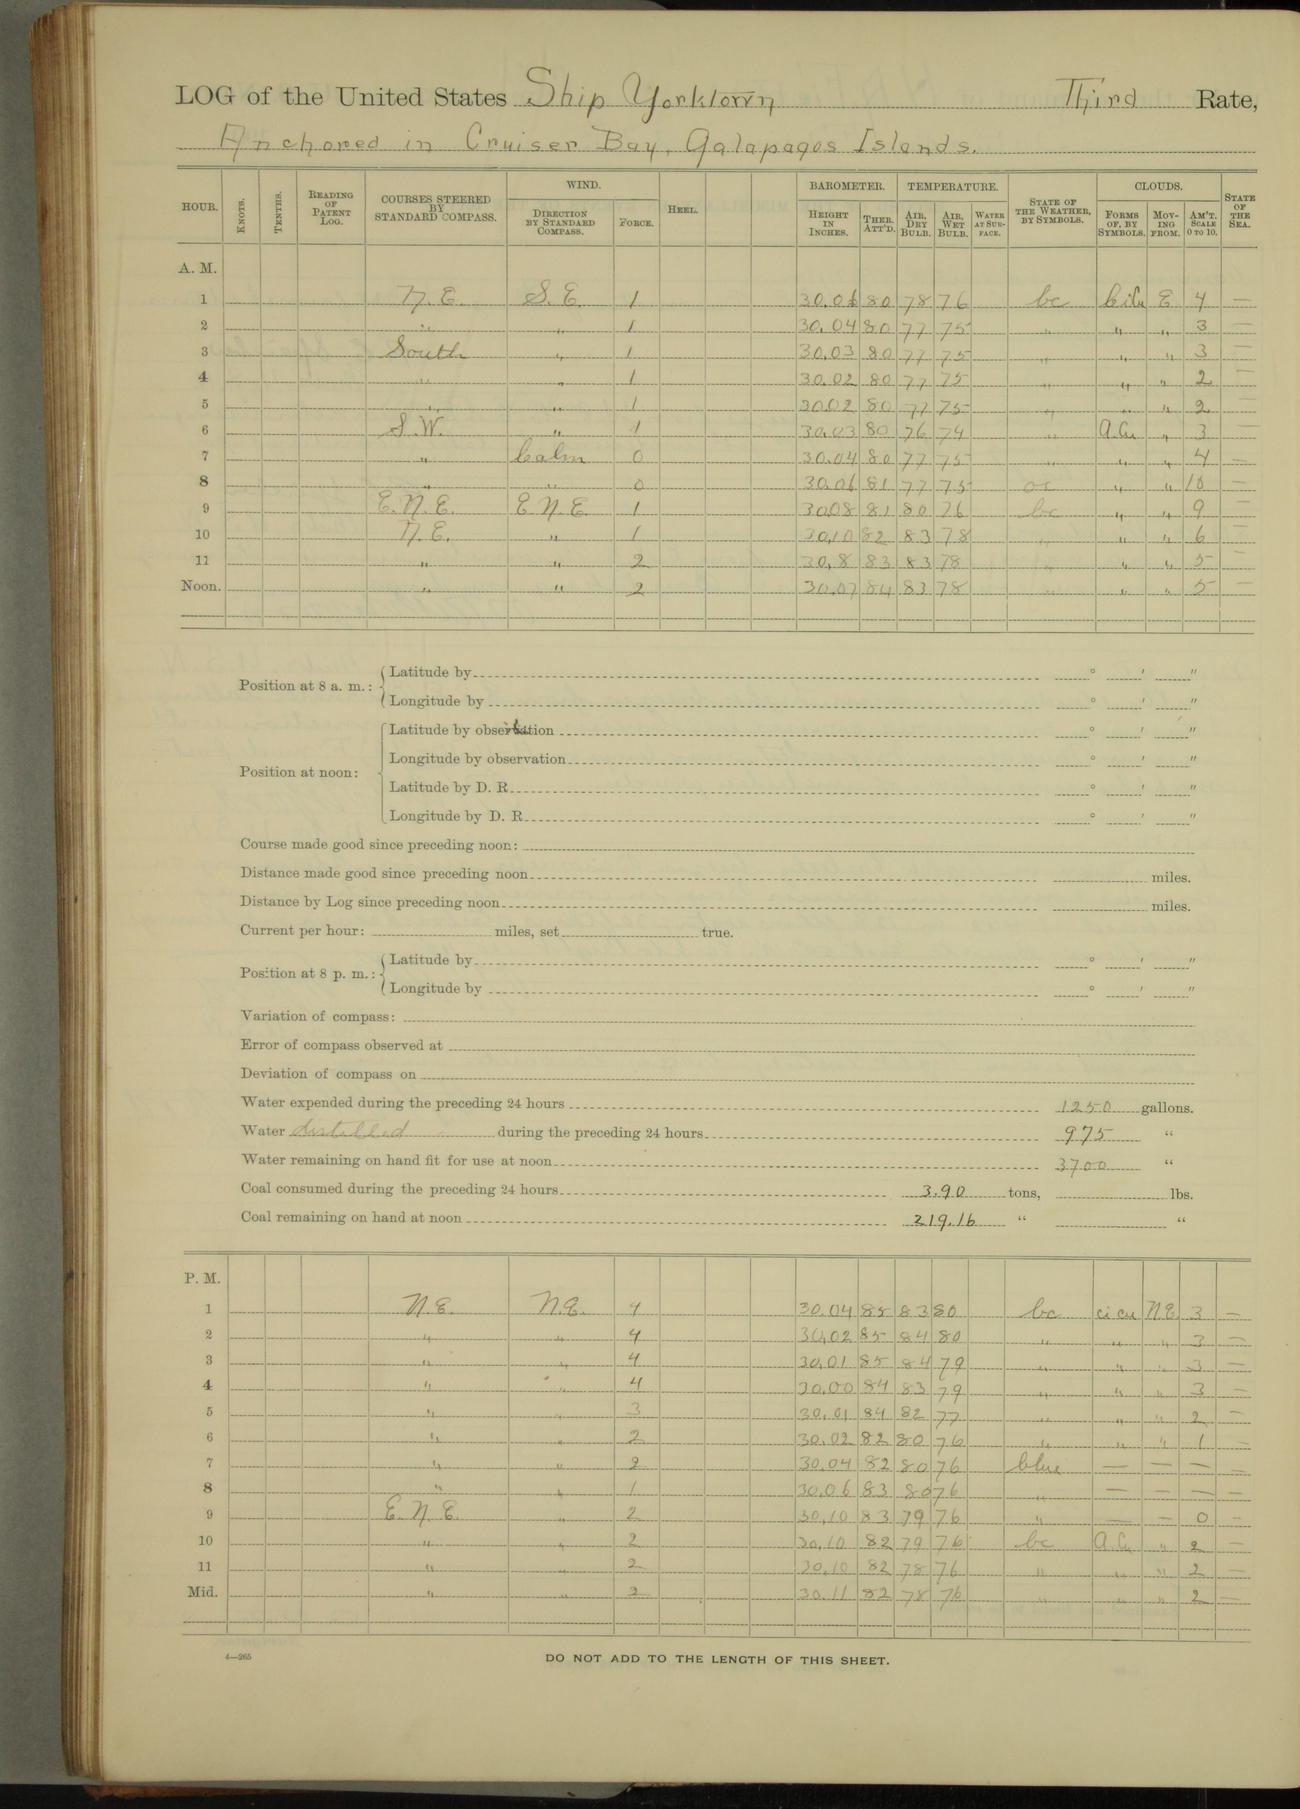 LOG of the United States Ship Yorktown Third Rate,
Anchored in Cruiser Bay, Galapagos Islands.
HOUR. KNOTS. TENTHS. READING OF PATENT LOG. COURSES STEERED BY STANDARD COMPASS. WIND. DIRECTION BY STANDARD COMPASS. FORCE. HEEL. BAROMETER. HEIGHT IN INCHES. THER. ATT'D. TEMPERATURE. AIR, DRY BULB. AIR, WET BULB. WATER AT SURFACE. STATE OF THE WEATHER, BY SYMBOLS. CLOUDS. FORMS OF, BY SYMBOLS. MOVING FROM. AM'T. SCALE 0 TO 10. STATE OF THE SEA.
A. M.
1 N.E. S.E. 1 30.06 80 78 76 bc Ci Cu E 4 —
2 " " 1 30.04 80 77 75 " " " 3 —
3 South " 1 30.03 80 77 75 " " " 3 —
4 " " 1 30.02 80 77 75 " " " 2 —
5 " " 1 30.02 80 77 75 " " " 2 —
6 S.W. " 1 30.03 80 76 74 " A.Cu " 3 —
7 " Calm 0 30.04 80 77 75 " " " 4 —
8 " " 0 30.06 81 77 75 oc " " 10 —
9 E.N.E. E N.E. 1 30.08 81 80 76 bc " " 9 —
10 N.E. " 1 30.10 82 83 78 " " " 6 —
11 " " 2 30.8 83 83 78 " " " 5 —
Noon. " " 2 30.07 84 83 78 " " " 5 —
Position at 8 a. m.: Latitude by ° ′ ″
Longitude by ° ′ ″
Position at noon: Latitude by observation ° ′ ″
Longitude by observation ° ′ ″
Latitude by D. R. ° ′ ″
Longitude by D. R. ° ′ ″
Course made good since preceding noon:
Distance made good since preceding noon miles.
Distance by Log since preceding noon miles.
Current per hour: miles, set true.
Position at 8 p. m.: Latitude by ° ′ ″
Longitude by ° ′ ″
Variation of compass:
Error of compass observed at
Deviation of compass on
Water expended during the preceding 24 hours 1250 gallons.
Water distilled during the preceding 24 hours 975 "
Water remaining on hand fit for use at noon 3700 "
Coal consumed during the preceding 24 hours 3.90 tons, lbs.
Coal remaining on hand at noon 219.16 " "
P. M.
1 N.E. N.E. 4 30.04 85 83 80 bc ci cu N.E. 3 —
2 " " 4 30.02 85 84 80 " " " 3 —
3 " " 4 30.01 85 84 79 " " " 3 —
4 " " 4 30.00 84 83 79 " " " 3 —
5 " " 3 30.01 84 82 77 " " " 2 —
6 " " 2 30.02 82 80 76 " " " 1 —
7 " " 2 30.04 82 80 76 blue — — — —
8 " " 1 30.06 83 80 76 " — — — —
9 E.N.E. " 2 30.10 83 79 76 " — — 0 —
10 " " 2 30.10 82 79 76 bc A.Cu " 2 —
11 " " 2 30.10 82 78 76 " " " 2 —
Mid. " " 2 30.11 82 78 76 " " " 2 —
4—265
DO NOT ADD TO THE LENGTH OF THIS SHEET.